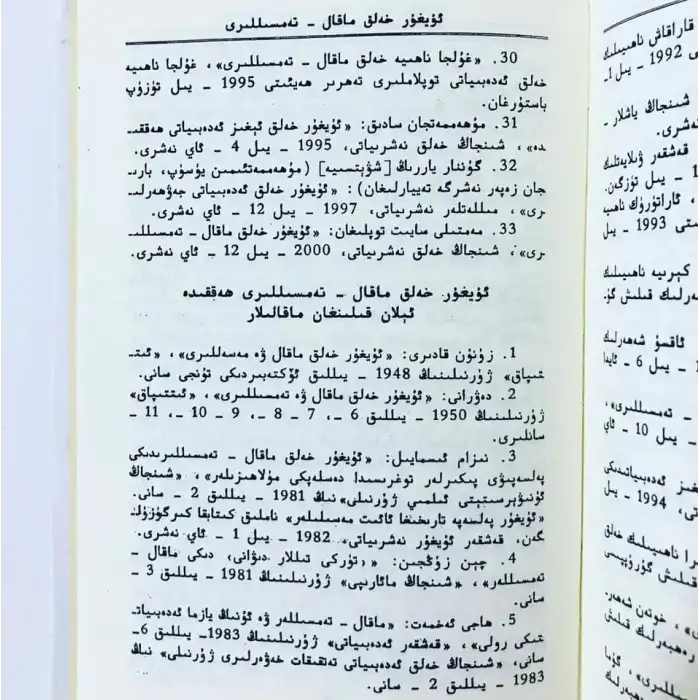 ئۇيغۇر خەلق ماقال ـ تەمسىللىرى
30. «غۇلجا ناھىيە خەلق ماقال ـ تەمسىللىرى»، غۇلجا ناھىيە
خەلق ئەدەبىياتى توپلاملىرى تەھرىر ھەيئىتى 1995 ـ يىل تۈزۈپ
باستۇرغان.
31. مۇھەممەتجان سادىق: «ئۇيغۇر خەلق ئېغىز ئەدەبىياتى ھەققىـ
دە»، شىنجاڭ خەلق نەشرىياتى، 1995 ـ يىل 4 ـ ئاي نەشرى.
32. گۇننار ياررىڭ [شۋېتسىيە] (مۇھەممەتئىمىن يۈسۈپ، بارىـ
جان زەپەر نەشرگە تەييارلىغان): «ئۇيغۇر خەلق ئەدەبىياتى جەۋھەرلىـ
رى»، مىللەتلەر نەشرىياتى، 1997 ـ يىل 12 ـ ئاي نەشرى.
33. مەمتىلى سايىت توپلىغان: «ئۇيغۇر خەلق ماقال ـ تەمسىللىـ
رى»، شىنجاڭ خەلق نەشرىياتى، 2000 ـ يىل 12 ـ ئاي نەشرى.
ئۇيغۇر خەلق ماقال ـ تەمسىللىرى ھەققىدە
ئېلان قىلىنغان ماقالىلار
1. زۇنۇن قادىرى: «ئۇيغۇر خەلق ماقال ۋە مەسەللىرى»، «ئىتـ
تىپاق» ژۇرنىلىنىڭ 1948 ـ يىللىق ئۆكتەبىردىكى تۇنجى سانى.
2. دەۋرانى: «ئۇيغۇر خەلق ماقال ۋە تەمسىللىرى»، «ئىتتىپاق»
ژۇرنىلىنىڭ 1950 ـ يىللىق 6 ـ، 7 ـ 8 ـ، 9 ـ 10 ـ، 11 ـ
سانلىرى.
3. نىزام ئىسمايىل: «ئۇيغۇر خەلق ماقال ـ تەمسىللىرىدىكى
پەلسەپىۋى پىكىرلەر توغرىسىدا دەسلەپكى مۇلاھىزىلەر»، «شىنجاڭ
ئۇنىۋېرسىتېتى ئىلمىي ژۇرنىلى»نىڭ 1981 ـ يىللىق 2 ـ سانى.
«ئۇيغۇر پەلسەپە تارىخىغا ئائىت مەسىلىلەر» ناملىق كىتابقا كىرگۈزۈلـ
گەن، قەشقەر ئۇيغۇر نەشرىياتى، 1982 ـ يىل 1 ـ ئاي نەشرى.
4. چېن زۇڭجېن: «‹تۈركى تىللار دىۋانى› دىكى ماقال ـ
تەمسىللەر»، «شىنجاڭ مائارىپى» ژۇرنىلىنىڭ 1981 ـ يىللىق 3 ـ
سانى.
5. ھاجى ئەخمەت: «ماقال ـ تەمسىللەر ۋە ئۇنىڭ يازما ئەدەبىياتـ
تىكى رولى»، «قەشقەر ئەدەبىياتى» ژۇرنىلىنىڭ 1983ـ يىللىق 6ـ
سانى، «شىنجاڭ خەلق ئەدەبىياتى تەتقىقات خەۋەرلىرى ژۇرنىلى» نىڭ
1983 ـ يىللىق 2 ـ سانى.
قاراقاش ناھىيىلىك
1992 ـ يىل 1ـ
شىنجاڭ ياشلار ـ
نەشرى.
قەشقەر ۋىلايەتلىك
ـ يىل تۈزگەن.
1993 ـ يىل
كېرىيە ناھىيىلىك
ئاقسۇ شەھەرلىك
ـ يىل 6 ـ ئايدا
ـ تەمسىللىرى»،
ـ يىل 10 ـ ئاي
1994 ـ يىل
خوتەن شەھەرـ